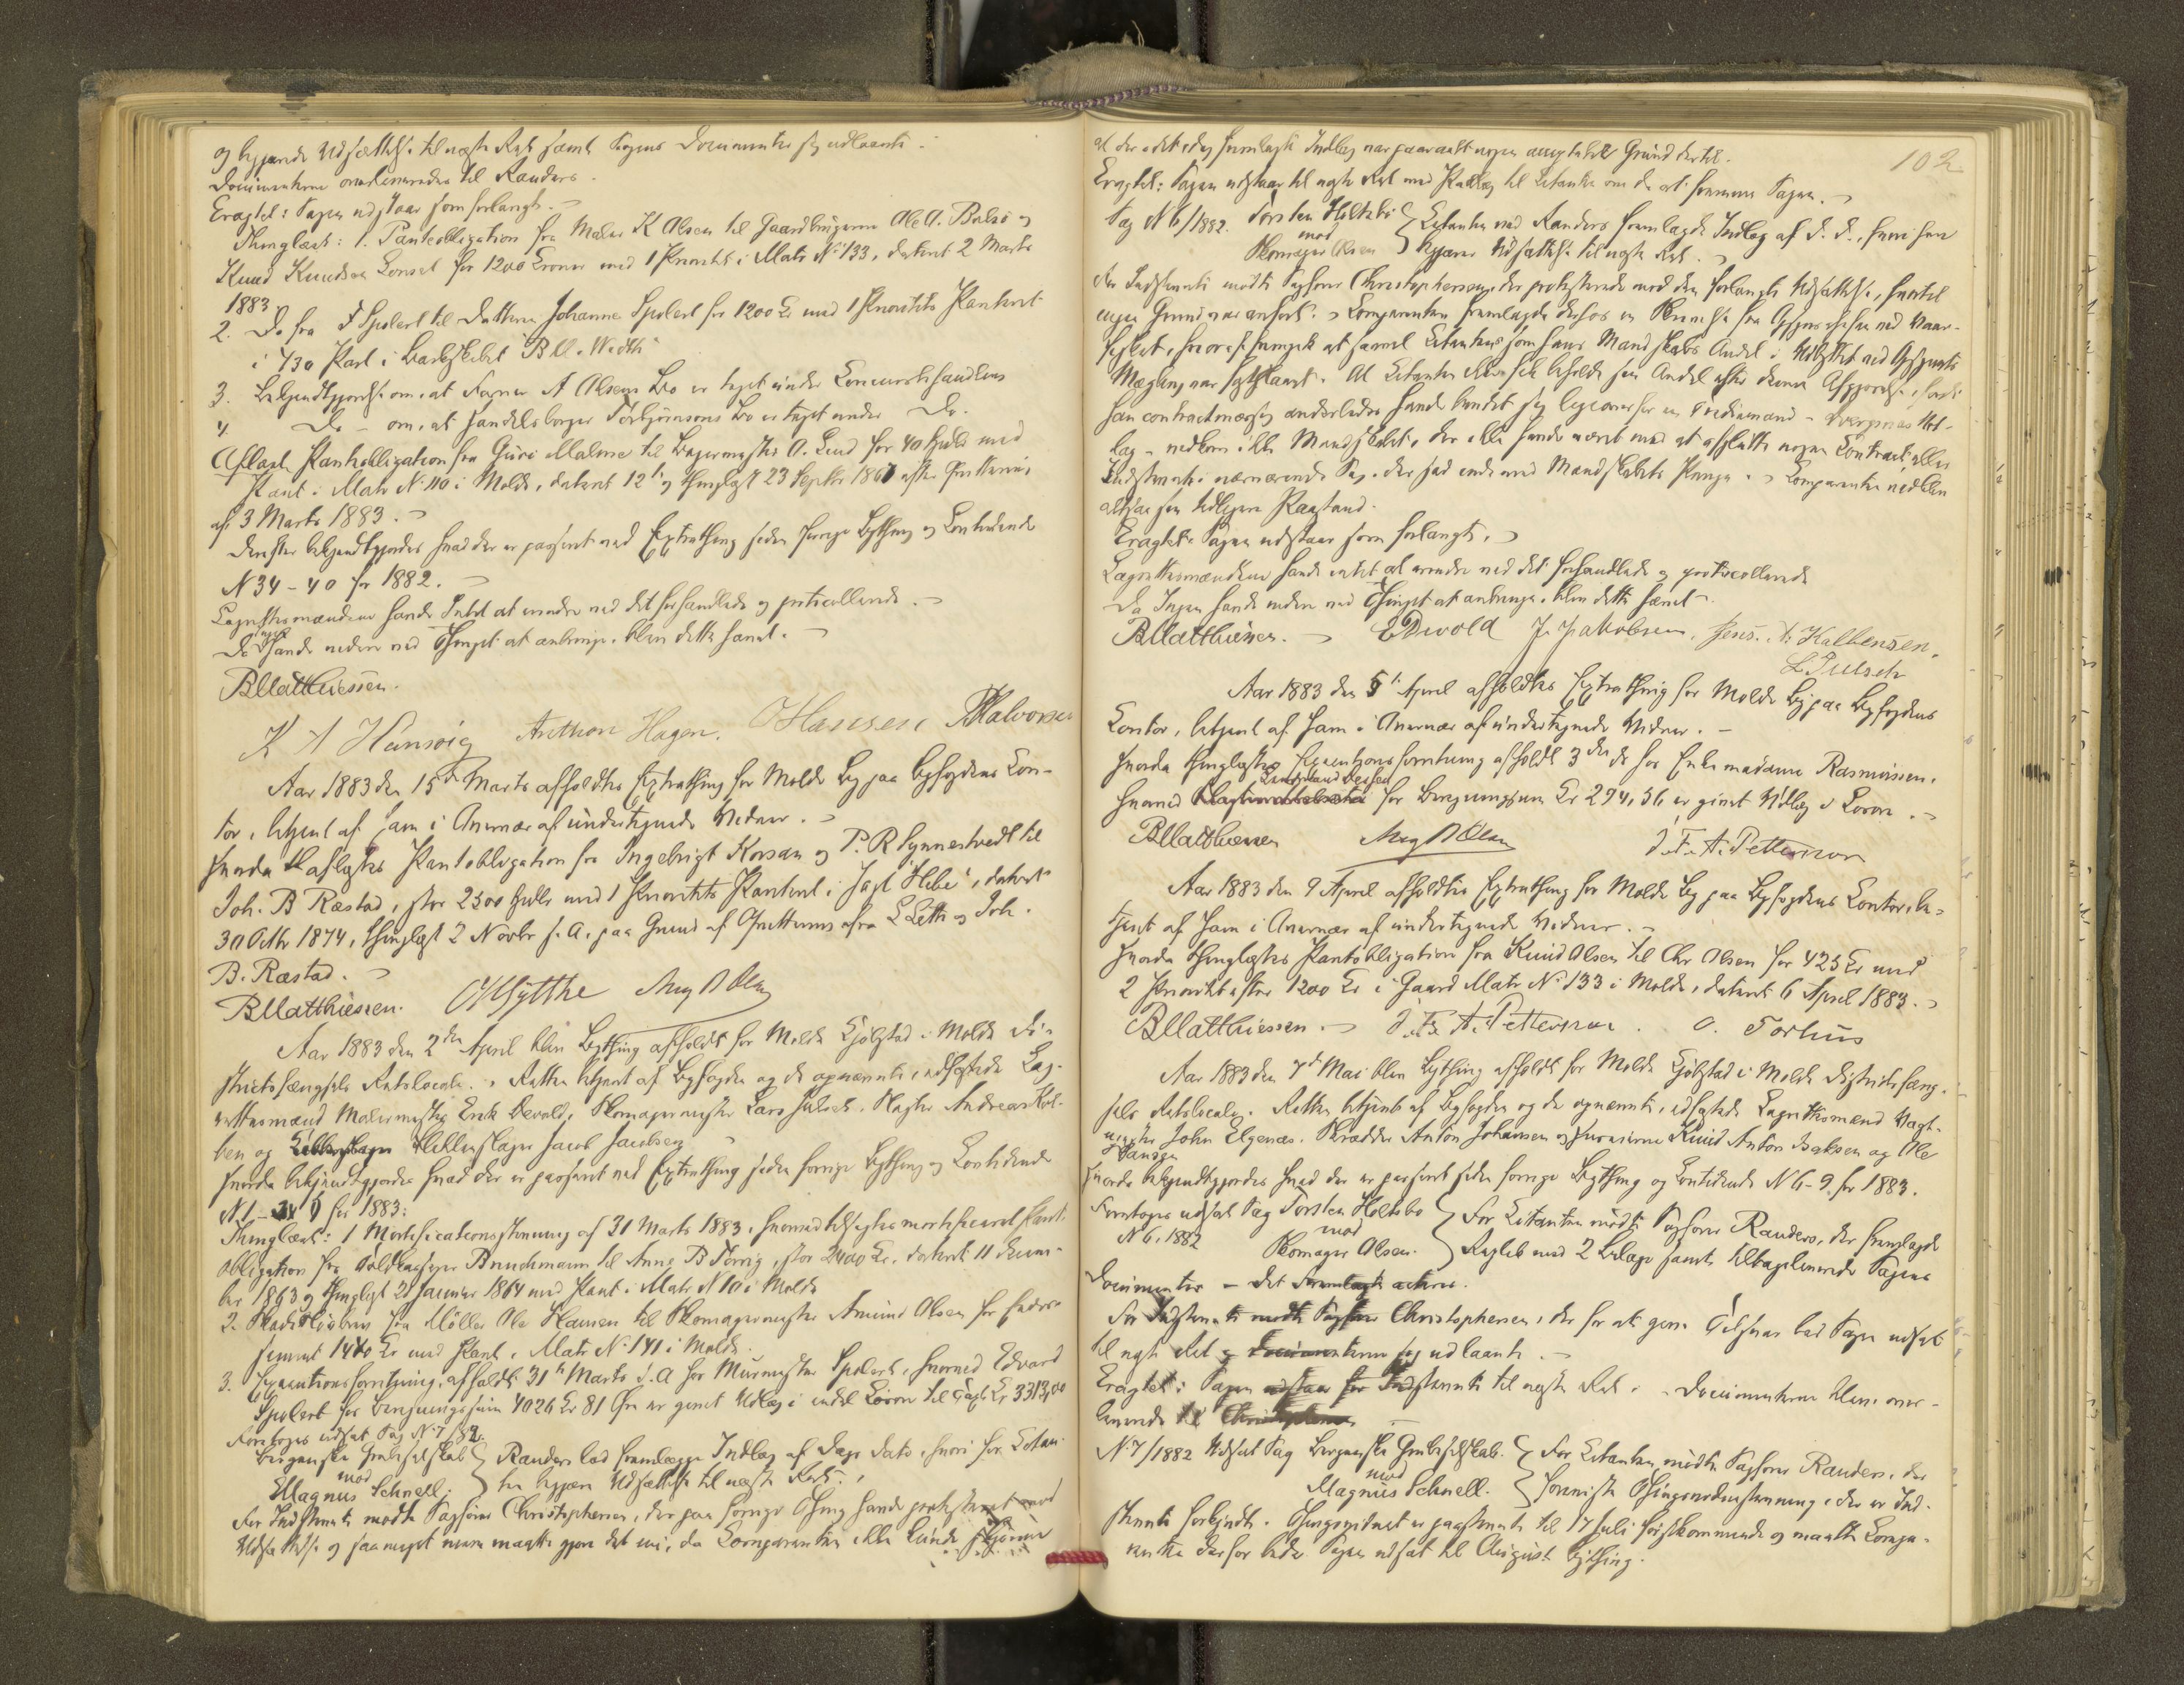 og begjærede Udsættelse til næste Ret samt Sagens Documenter sig udlaante.
Documenterne overleveredes til Randers.
Eragtet: Sagen udstaar som forlangt.
Thinglæst: 1. Panteobligation fra Maler K Olsen til Gaardbrugerne Ole A. Bolsø og
Knud Knudsen Lonset for 1200 Kroner med 1 Prioritet i Matr N 133, dateret 2 Marts
1883.
2. Do fra F Spolert til Datteren Johanne Spolert for 1200 Kr med 1 Prioritets Panteret
i 7/30 Part i Barkskibet "B M. Width"
3. Bekjendtgjørelse om, at Farver A Olsens Bo er taget under Concursbehandling
4 Do - om, at Handelsborger Torbjørnsens Bo er taget under Do.
Aflæst Panteobligation fra Guri Malme til Bagermester O. Lund for 40 Spdlr med
Pant i Matr N 110 i Molde, dateret 12te og thinglyst 23 Septbr 1867 efter Qvittering
af 3 Marts 1883.
Derefter bekjendtgjordes hvad der er passeret ved Extrathing siden forrige Bything og Lovtidende
N 34 - 40 for 1882.
Lagrettesmændene havde Intet at erindre ved det forhandlede og protocollerede.
Da Ingen havde videre ved Thinget at anbringe, blev dette hævet.
B Matthiessen.
K A Hansvig Anthon Hagen. O Hansen P Halvorsen
Aar 1883 den 15de Marts afholdtes Extrathing for Molde By paa Byfogdens Con-
tor, betjent af ham i Overvær af undertegnede Vidner.
Hvorda aflystes Pantobligation fra Ingebrigt Korsan og P. R Lynnestvedt til
Joh. B Ræstad, stor 2500 Spdlr med 1 Prioritets Panteret i Jagt "Hebe", dateret
30 Octbr 1874, thinglyst 2 Novbr s. A. paa Grund af Qvittering fra L Leth og Joh.
B. Ræstad.
B Matthiessen. O Sylthe Aug N Olsen
Aar 1883 den 2den April blev Bything afholdt for Molde Kjøbstad i Molde Di-
strictsfængsels Retslocale. Retten betjent af Byfogden og de opnævnte, edfæstede Lag-
rettesmænd Malermester Erik Devold, Skomagermester Lars Jutseth, Slagter Andreas Kol-
ben og Blikkenslager Jacob Jacobsen
Hvorda bekjendtgjordes hvad der er passeret ved Extrathing siden forrige Bything og Lovtidende
N 1 - 5 for 1883:
Thinglæst: 1 Mortificationsstevning af 31 Marts 1883, hvorved tilsigtes mortificeret Pant-
obligation fra Toldkasserer Bruchmann til Anne B Torrig, stor 2400 Kr. dateret 11 Decem-
ber 1863 og thinglyst 21 Januar 1864 med Pant i Matr N 10 i Molde
2. Skadesløsbrev fra Møller Ole Hansen til Skomagermester Amund Olsen for Endos-
sement 1440 Kr med Pant i Matr N 141 i Molde.
3. Executionsforretning, afholdt 31te Marts d. A hos Murmester Spolert, hvorved Edvard
Spolert for Bergningssum 4026 Kr 81 Øre er givet Udlæg i endel Løsøre til Taxt Kr 3313,00
Foretoges udsat Sag N 7/82.
Bergenske Grubeselskab } Randers lod fremlægge Indlæg af Dags Dato, hvori for Citan-
mod
Magnus Schnell; } ten begjæres Udsættelse til næste Ret.
For Indstevnte mødte Sagfører Christophersen, der paa forrige Thing havde protesteret mod
Udsættelse og saameget mere maatte gjøre det nu, da Comparenten ikke kunde skjønne
102
at der i det idag fremlagte Indlæg var paaraabt nogen antagelig Grund dertil.
Eragtet: Sagen udstaar til næste Ret med Paalæg til Citanten om da at fremme Sagen.
Sag N 6/1882. Torsten Holtebo } Citanten ved Randers fremlagde Indlæg af D. D., hvori han
mod
Skomager Olsen } begjærer Udsættelse til næste Ret.
For Indstevnte mødte Sagfører Christophersen, der protesterede mod den forlangte Udsættelse, hvortil
ingen Grund var anført. Comparenten fremlagde derhos en Skrivelse fra Opsynschefen ved Vaar-
sildfisket, hvoraf fremgik at saavel Citantens som hans Mandskabs Andel i Udbyttet ved Opsynets
Mægling var fastslaaet. At Citanten ikke fik beholde sin Andel efter denne Afgjørelse, fordi
han contractmæssig anderledes havde bundet sig ligeoverfor en Trediemand - Svergnæs Not-
lag - vedkom ikke Mandskabet, der ikke havde været med at afslutte nogen Contract, eller
Indstevnte i nærværende Sag, der sad inde med Mandskabets Penge. Comparenten nedlagde
altsaa sin tidligere Paastand.
Eragtet: Sagen udstaar som forlangt.
Lagrettesmændene havde intet at erindre ved det forhandlede og protocollerede
Da Ingen havde videre ved Thinget at anbringe, blev dette hævet.
B Matthiessen. E Devold J. Jakobsen. Jens. A. Kalbensen.
L Jutseth
Aar 1883 den 5te April afholdtes Extrathing for Molde By paa Byfogdens
Contor, betjent af ham i Overvær af undertegnede Vidner.
Hvorda thinglæstes Executionsforretning afholdt 3die ds hos Enkemadame Rasmussen,
hvorved for Bergningssum Kr 294,56 er givet Udlæg i Løsøre.
B Matthiessen Aug N Olsen J. F. A. Petterson
Aar 1883 den 9 April afholdtes Extrathing for Molde By paa Byfogdens Contor, be-
tjent af ham i Overvær af undertegnede Vidner.
Hvorda thinglæstes Pantobligation fra Knud Olsen til Chr Olsen for 425 Kr med
2 Prioritet efter 1200 Kr i Gaard Matr N 133 i Molde, dateret 6 April 1883.
B Matthiessen. J. F. A. Petterson. O. Torhus
Aar 1883 den 7de Mai blev Bything afholdt for Molde Kjøbstad i Molde Districtsfæng-
sels Retslocale. Retten betjent af Byfogden og de opnævnte, edfæstede Lagrettesmænd Vagt-
mester John Elgenæs, Skrædder Anton Johansen og Knud Anton Isaksen og Ole
Hansen
Hvorda bekjendtgjordes hvad der er passeret siden forrige Bything og Lovtidende N 6 - 9 for 1883.
Foretoges udsat Sag Torsten Holtebo } For Citanten mødte Sagfører Randers, der fremlagde
N 6, 1882 mod
Skomager Olsen. } Replik med 2 Bilage samt tilbageleverede Sagens
Documenter - Det fremlagte acteres.
For Indstevnte mødte Sagfører Christophersen, der for at give Tilsvar bad Sagen udsat
til næste Ret og Documenterne sig udlaante.
Eragtet: Sagen udstaar for Indstevnte til næste Ret. Documenterne bleve over-
leverede til Christophersen
N 7/1882 Udsat Sag Bergenske Grubeselskab. } For Citanten mødte Sagfører Randers, der
mod
Magnus Schnell. } foreviste Thingsvidnestevning, der er Ind-
stevnte forkyndt. Thingsvidnet er paastevnt til 17 Juli førstkommende og maatte Compa-
renten derfor bede Sagen udsat til August Bything.